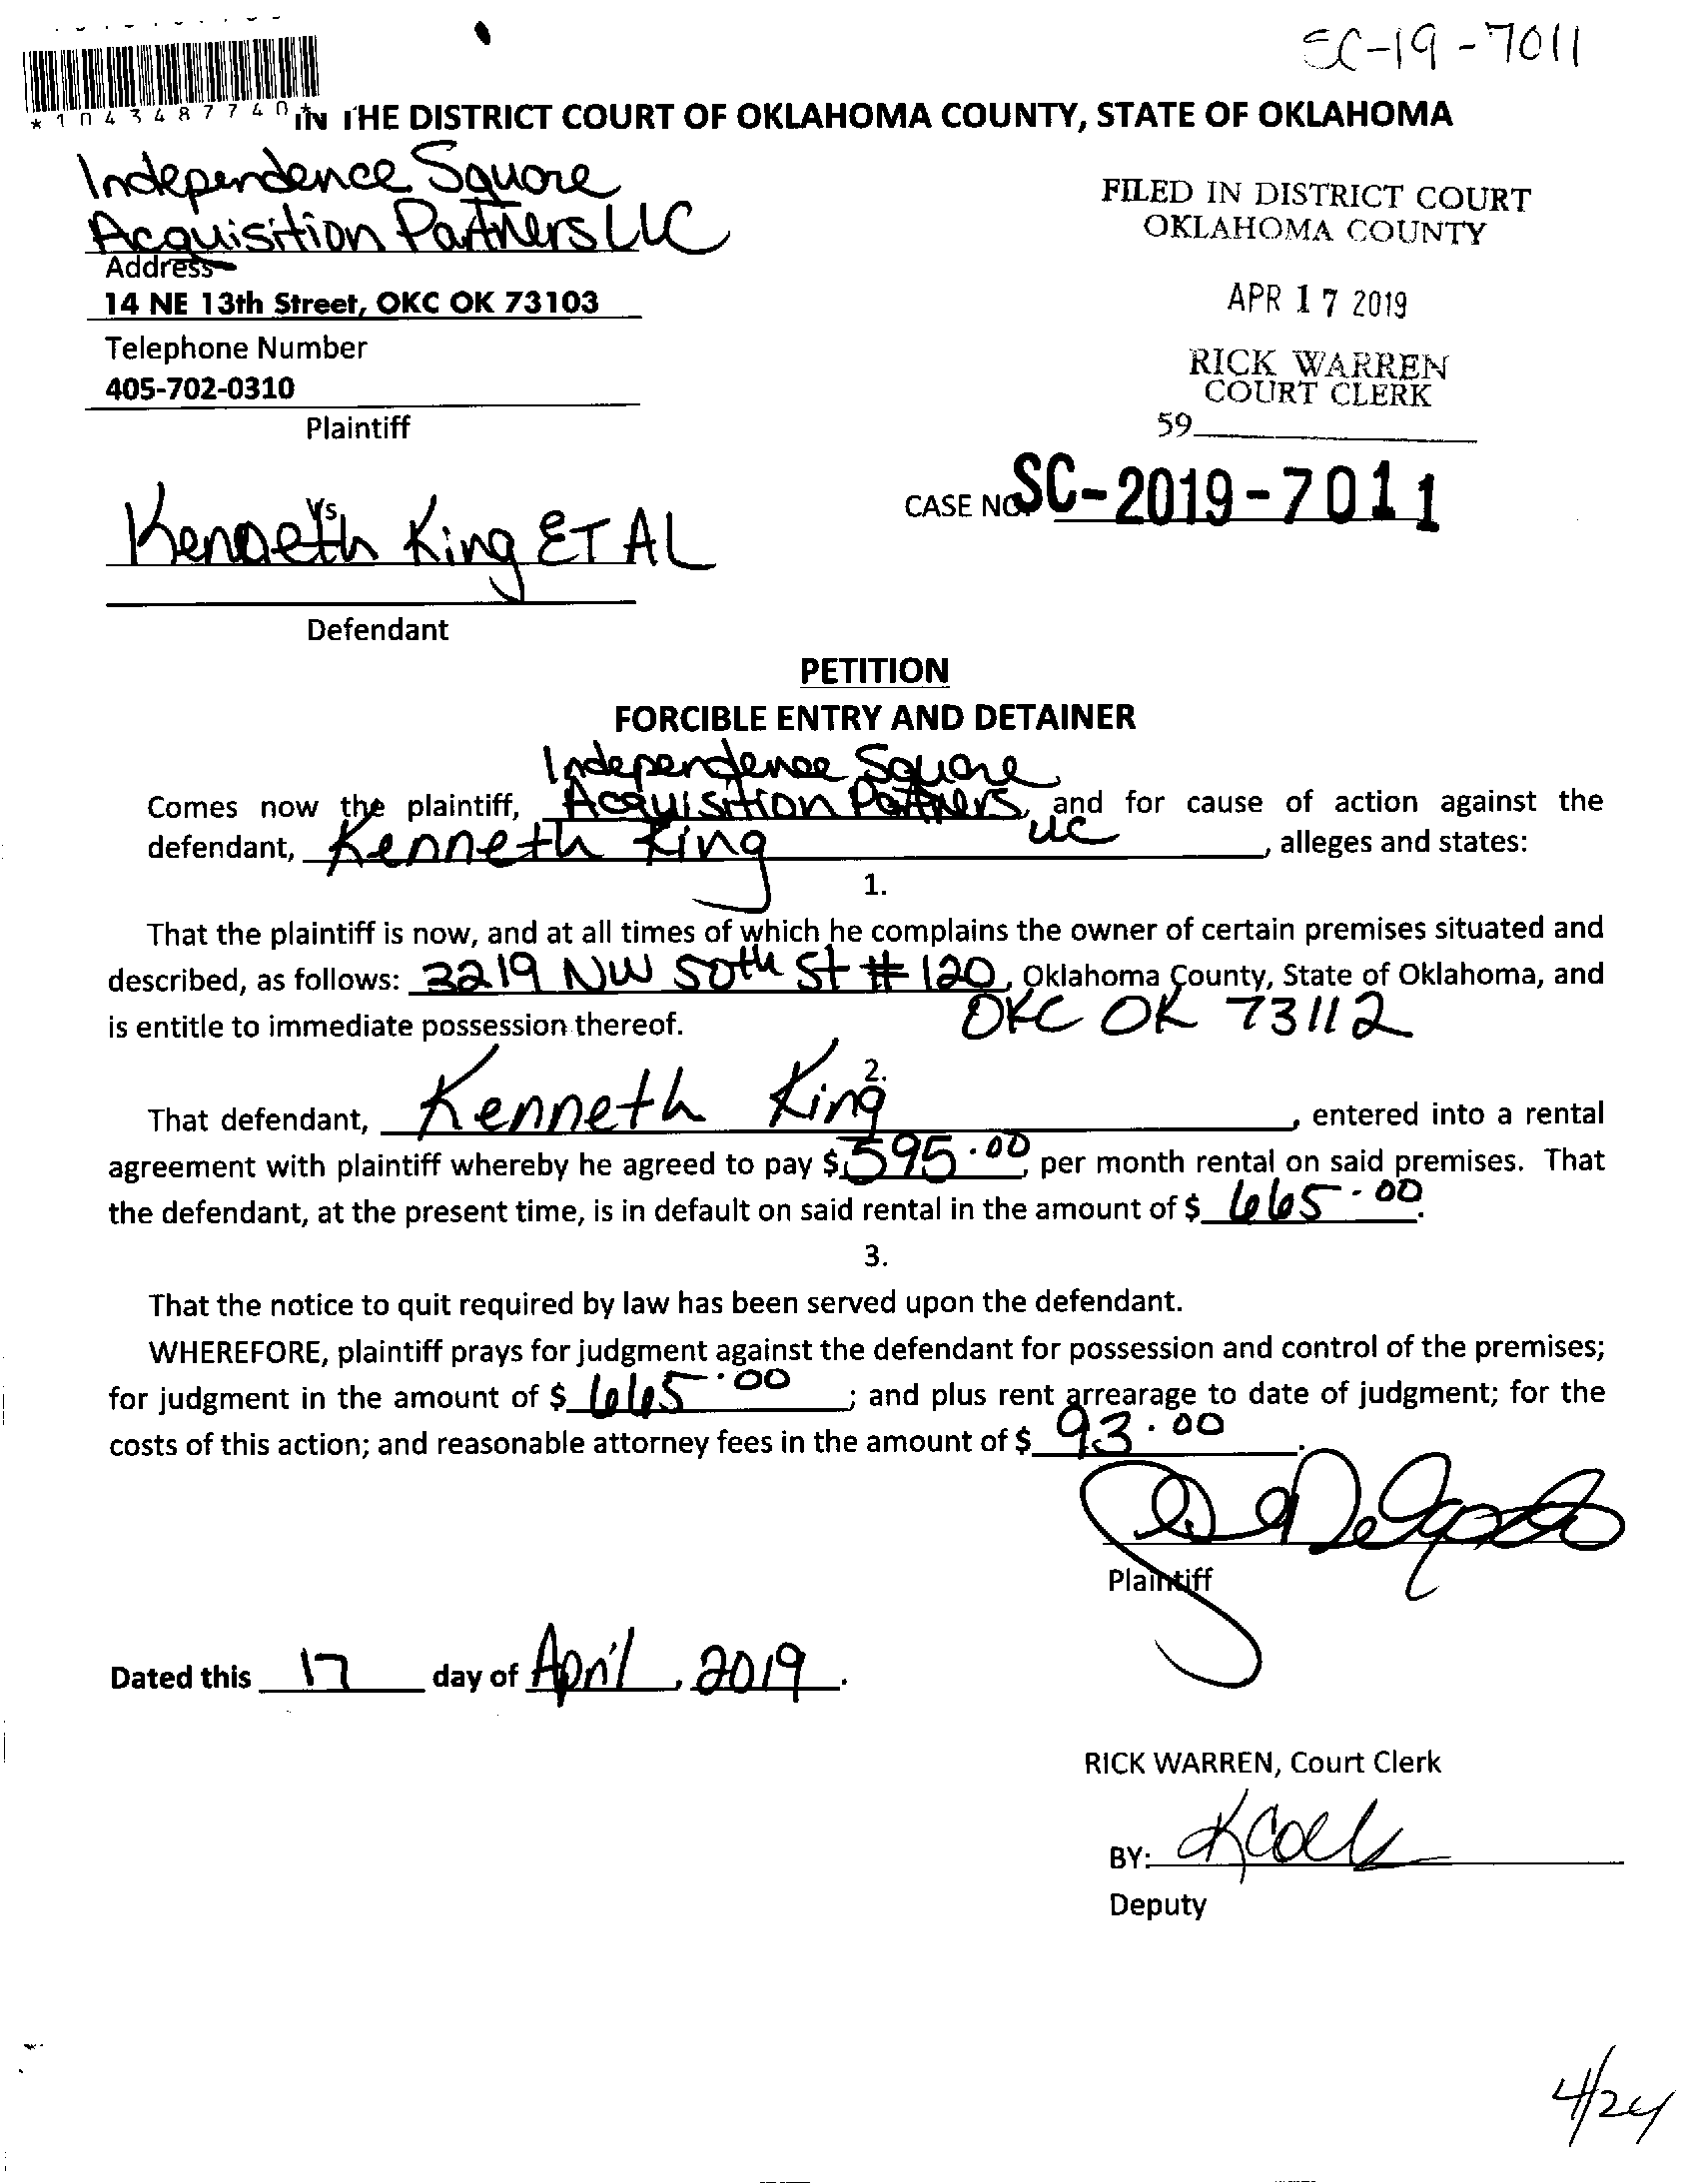 SC-19-7011
*1043487740*
IN THE DISTRICT COURT OF OKLAHOMA COUNTY, STATE OF OKLAHOMA
Independence Square
Acquisition Partners LLC
Address
14 NE 13th Street, OKC OK 73103
Telephone Number
405-702-0310
Plaintiff
FILED IN DISTRICT COURT
OKLAHOMA COUNTY
APR 17 2019
RICK WARREN
COURT CLERK
59
Vs.
Kenneth King ET AL
CASE NO. SC-2019-7011
Defendant
PETITION
FORCIBLE ENTRY AND DETAINER
Independence Square
Comes now the plaintiff, Acquisition Partners, and for cause of action against the
LLC
defendant, Kenneth King, alleges and states:
1.
That the plaintiff is now, and at all times of which he complains the owner of certain premises situated and
described, as follows: 3219 NW 50th St # 120, Oklahoma County, State of Oklahoma, and
OKC OK 73112
is entitle to immediate possession thereof.
2.
That defendant, Kenneth King, entered into a rental
agreement with plaintiff whereby he agreed to pay $ 595.00, per month rental on said premises. That
the defendant, at the present time, is in default on said rental in the amount of $ 665.00.
3.
That the notice to quit required by law has been served upon the defendant.
WHEREFORE, plaintiff prays for judgment against the defendant for possession and control of the premises;
for judgment in the amount of $ 665.00; and plus rent arrearage to date of judgment; for the
costs of this action; and reasonable attorney fees in the amount of $ 93.00.
Plaintiff
Dated this 17 day of April, 2019.
RICK WARREN, Court Clerk
BY:
Deputy
4/24